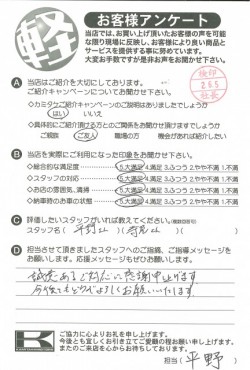 軽
お客様アンケート
当店では、お買い上げ頂いたお客様の声を可能
な限り現場に反映し、お客様により良い商品と
サービスを提供する事に努めています。
大変お手数ですが是非お声をお聞かせ下さい。
A 当店はご紹介を大切にしております。
ご紹介キャンペーンについてお聞かせ下さい。
検印
2.6.5
社長
はい いいえ
ご親戚 ご友人 職場の方 機会があれば紹介したい
B 当店を実際にご利用になった印象をお聞かせ下さい。
総合的な満足度 5.大満足 4.満足 3.ふつう 2.やや不満 1.不満
スタッフの対応 5.大満足 4.満足 3.ふつう 2.やや不満 1.不満
お店の雰囲気、清掃 5.大満足 4.満足 3.ふつう 2.やや不満 1.不満
納車時のお車の状態 5.大満足 4.満足 3.ふつう 2.やや不満 1.不満
C 評価したいスタッフがいれば教えてください。
スタッフ名
D 担当させて頂きましたスタッフへのご指摘、ご指導メッセージを
お願いします。応援メッセージもぜひお願いします。
誠意あるご対応に感謝申し上げます。
今後ともどうぞよろしくお願いいたします。
K
ご協力に心よりお礼を申し上げます。
今後とも宜しくお引き立てご愛顧の程お願い申し上げます。
またのご来店を心からお待ちしております。
担当(平野)